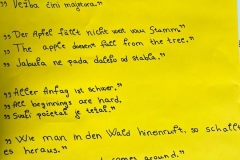 „ Vežba čini majstora."
„ Der Apfel fällt nicht weit vom Stamm."
„ The apple doesn't fall from the tree."
„ Jabuka ne pada daleko od stabla."
„ Aller Anfag ist schwer."
„ All beginnings are hard.
„ Svaki početak je težak."
„ Wie man in den Wald hineinruft, so schallt
es heraus."
comes around."